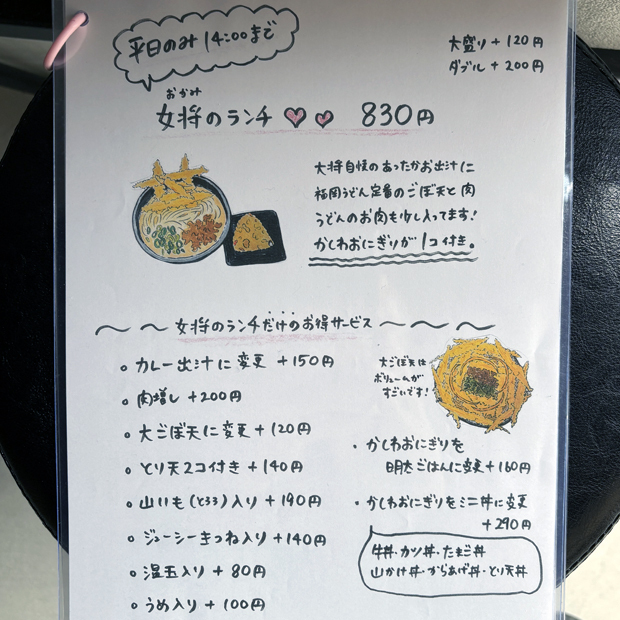 平日のみ 14:00まで
大盛り + 120円
ダブル + 200円
おかみ
女将のランチ 830円
大将自慢のあったかお出汁に
福岡うどん定番のごぼ天と肉
うどんのお肉も少し入ってます!
かしわおにぎりが1コ付き。
女将のランチだけのお得サービス
カレー出汁に変更 +150円
肉増し +200円
大ごぼ天に変更 +120円
とり天2コ付き +140円
山いも(とろろ)入り +190円
ジューシーきつね入り +140円
温玉入り + 80円
うめ入り + 100円
大ごぼ天は
ボリュームが
すごいです!
・かしわおにぎりを
明太ごはんに変更 +160円
・かしわおにぎりをミニ丼に変更
+290円
牛丼・カツ丼・たまご丼
山かけ丼・からあげ丼・とり天丼